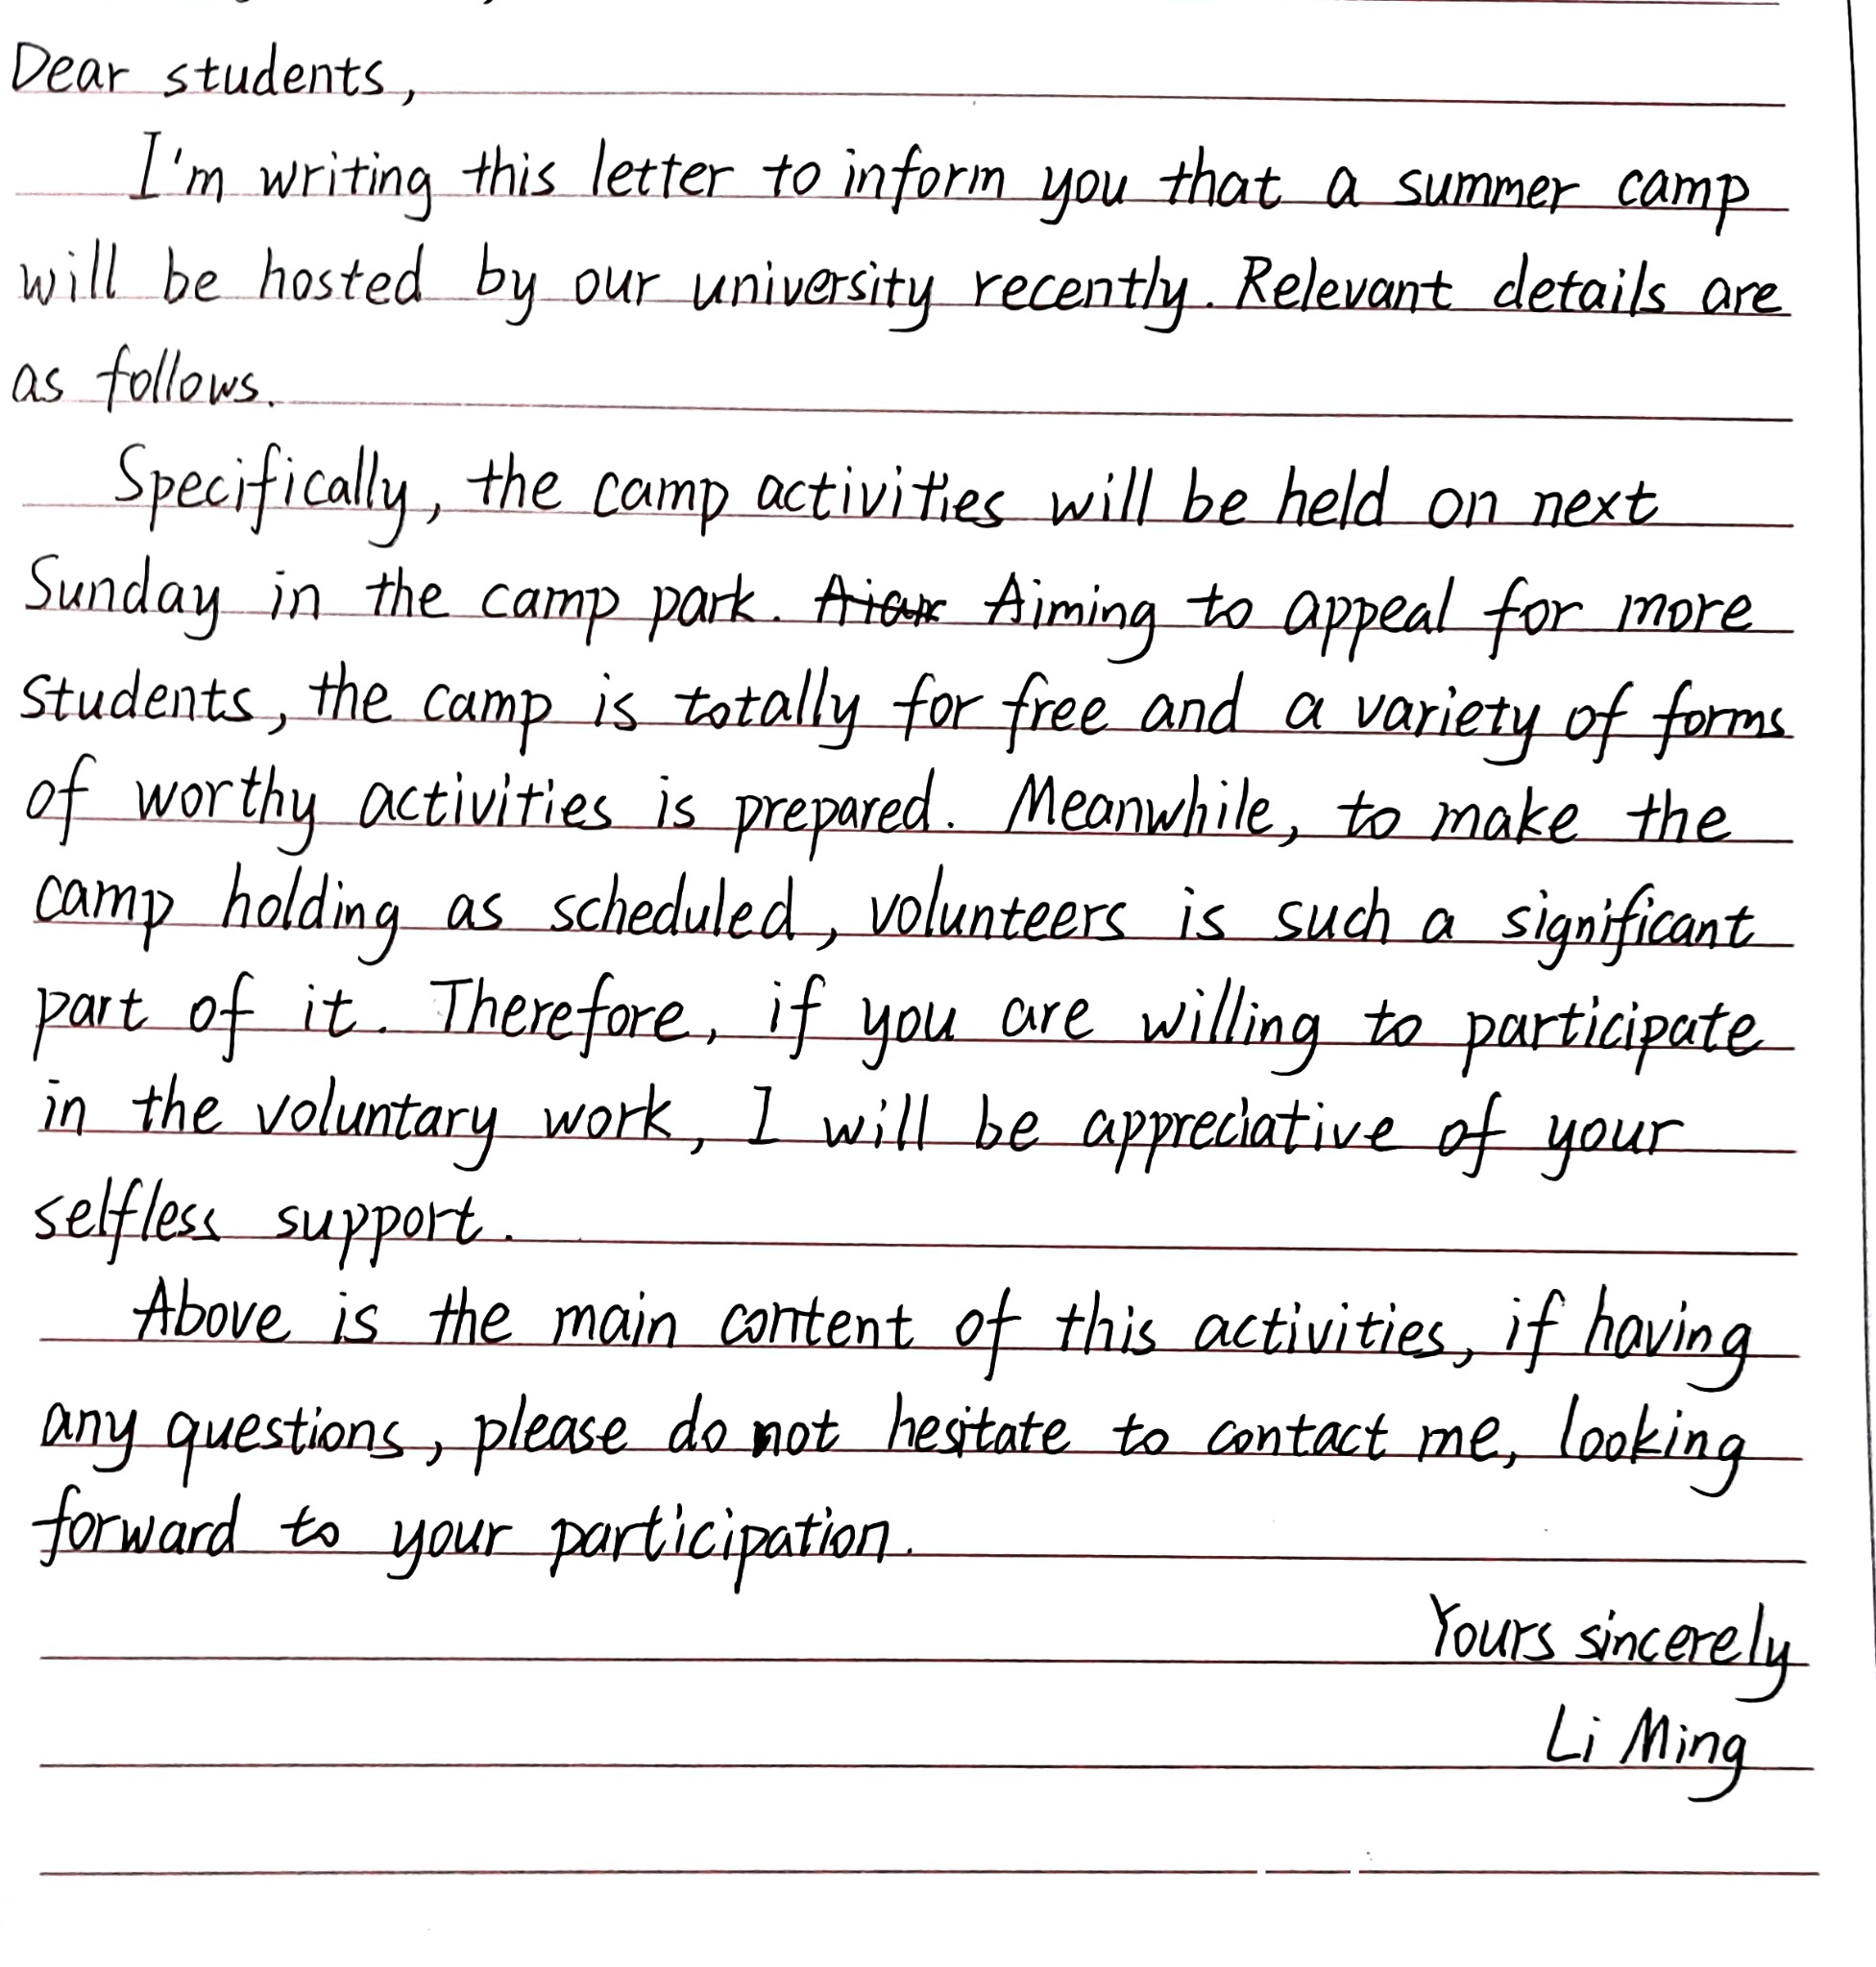 Dear students,
I'm writing this letter to inform you that a summer camp
will be hosted by our university recently. Relevant details are
as follows.
Specifically, the camp activities will be held on next
Sunday in the camp park. Aiming to appeal for more
students, the camp is totally for free and a variety of forms
of worthy activities is prepared. Meanwhile, to make the
camp holding as scheduled, volunteers is such a significant
part of it. Therefore, if you are willing to participate
in the voluntary work, I will be appreciative of your
selfless support.
Above is the main content of this activities, if having
any questions, please do not hesitate to contact me, looking
forward to your participation.
Yours sincerely
Li Ming